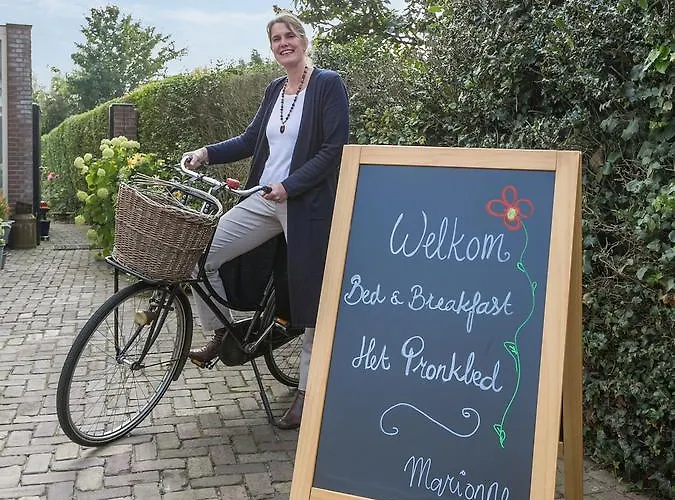 Welkom
Bed & Breakfast
Het Pronkled
Marionne